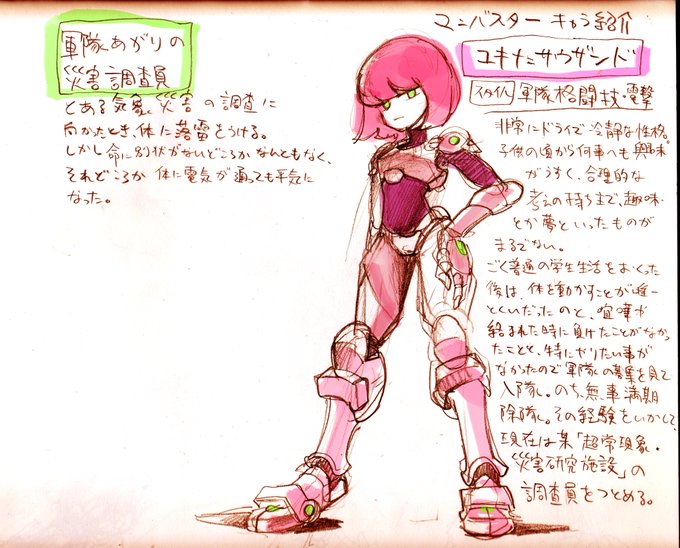 マンバスター キャラ紹介
ユキナ=サウザンド
スタイル 軍隊格闘技・電撃
軍隊あがりの
災害調査員
とある気象、災害の調査に
向かったとき、体に落雷をうける。
しかし命に別状がないどころかなんともなく、
それどころか体に電気が通っても平気に
なった。
非常にドライで冷静な性格。
子供の頃から何事へも興味
がうすく、合理的な
考えの持ち主で、趣味
とか夢といったものが
まるでない。
ごく普通の学生生活をおくった
後は、体を動かすことが唯一
とくいだったのと、喧嘩が
絡まれた時に負けたことがなかっ
たことと、特にやりたい事が
なかったので軍隊の募集を見て
入隊。のち、無事満期
除隊。その経験をいかして、
現在は某「超常現象・
災害研究施設」の
調査員をつとめる。